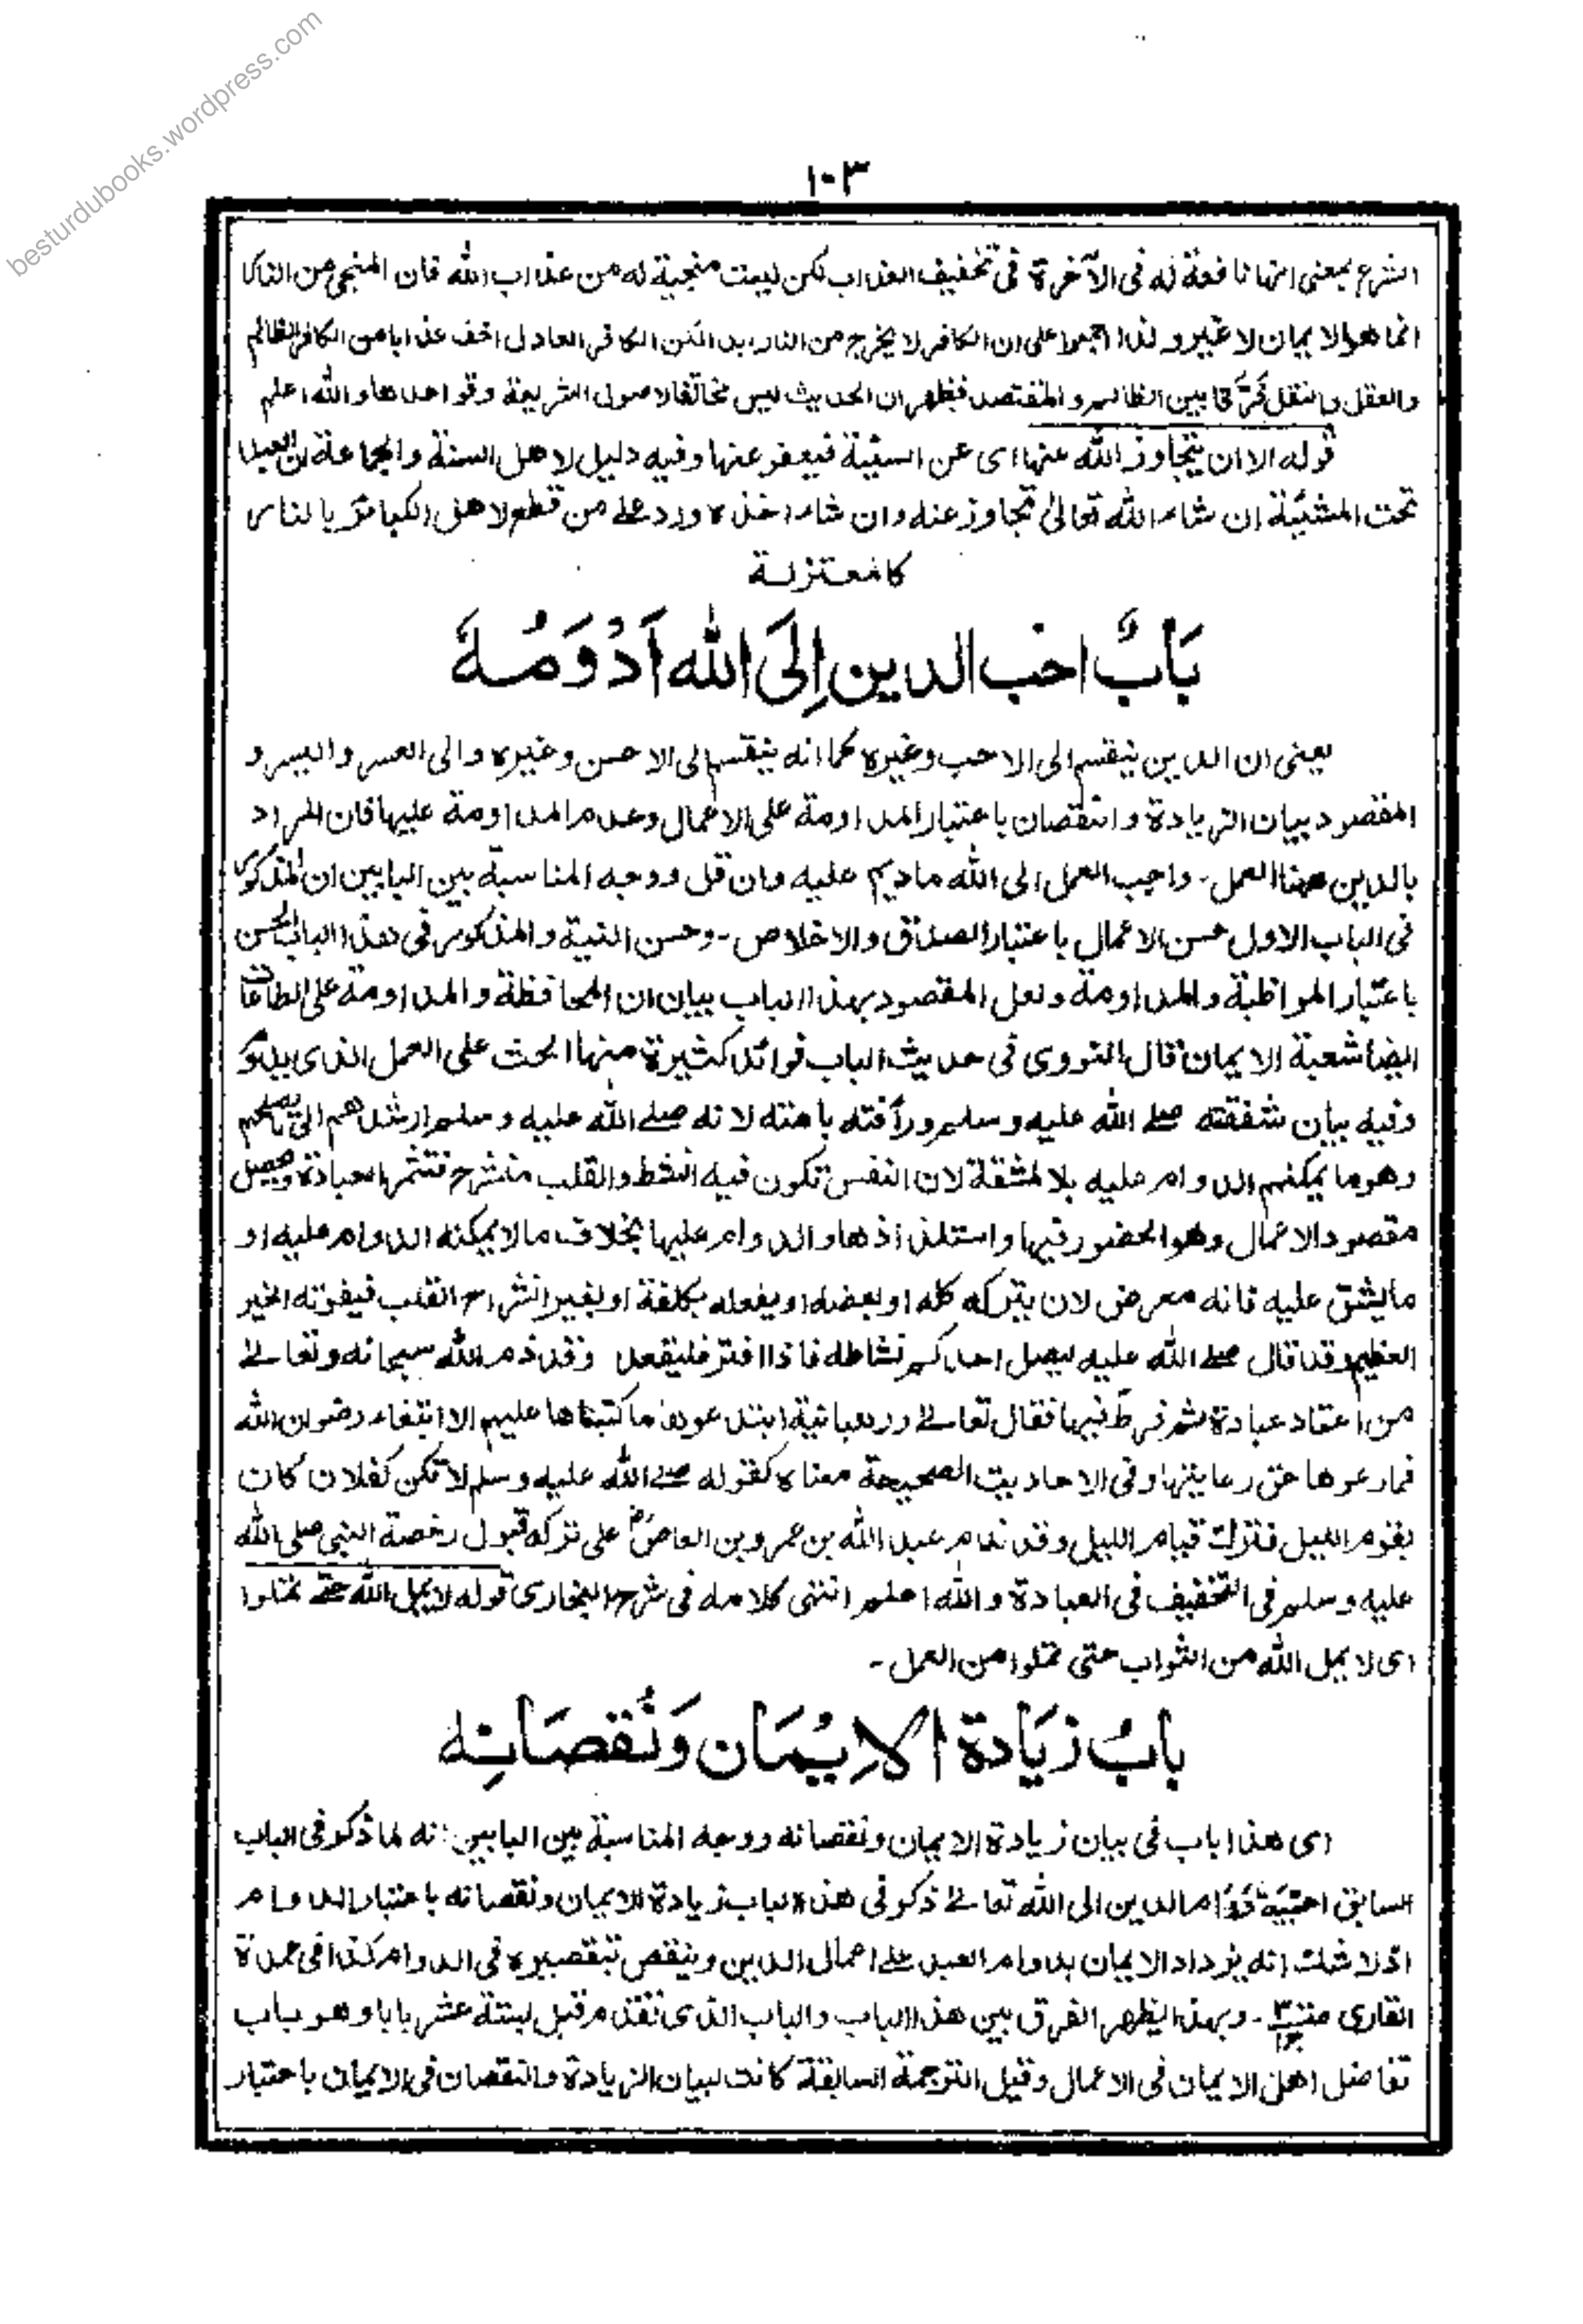 besturdubooks.wordpress.com
١٠٣
الشرع بمعنى انها نافعة له فى الآخرة فى تخفيف العذاب لكن ليست منجية له من عذاب الله فان المنجى من النار
انما هو الايمان لا غير ولذا اجمعوا على ان الكافر لا يخرج من النار ابدا لكن الكافر العادل اخف عذابا من الكافر الظالم
والعقل والنقل فرّقا بين الظالم والمقتصد فظهر ان الحديث ليس مخالفا لاصول الشريعة وقواعدها والله اعلم
قوله الا ان يتجاوز الله عنها اى عن السيئة فيعفو عنها وفيه دليل لاهل السنة والجماعة ان العبد
تحت المشيئة ان شاء الله تعالى تجاوز عنه وان شاء اخذه ورد على من قطع لاهل الكبائر بالنار
كالمعتزلة
بَابٌ احب الدين اِلَى الله اَدْوَمُهٗ
يعنى ان الدين ينقسم الى الاحب وغيره كما انه ينقسم الى الاحسن وغيره والى العسر واليسر و
المقصود بيان الزيادة والنقصان باعتبار المداومة على الاعمال وعدم المداومة عليها فان المراد
بالدين ههنا العمل - واحب العمل الى الله ماديم عليه وان قل ووجه المناسبة بين البابين ان المذكور
فى الباب الاول حسن الاعمال باعتبار الصدق والاخلاص - وحسن النية والمذكور فى هذا الباب الحسن
باعتبار المواظبة والمداومة ولعل المقصود بهذا الباب بيان ان المحافظة والمداومة على الطاعات
ايضا شعبة الايمان قال النووى فى حديث الباب فوائد كثيرة منها الحث على العمل الذى يدوم
وفيه بيان شفقته صلے الله عليه وسلم ورأفته بامته لانه صلے الله عليه وسلم ارشدهم الى ما يصلحهم
وهو ما يمكنهم الدوام عليه بلا مشقة لان النفس تكون فيه انشط والقلب منشرح فتثمر العبادة ويحصل
مقصود الاعمال وهو الحضور فيها واستلذاذها والدوام عليها بخلاف مالا يمكنه الدوام عليه او
ما يشق عليه فانه معرض لان يتركه كله او بعضه او يفعله بكلفة او بغير انشراح القلب فيفوته الخير
العظيم وقد قال صلے الله عليه ليصل احدكم نشاطه فاذا افتر فليقعد وقد ذم الله سبحانه وتعالے
من اعتاد عبادة ثم فرط فيها فقال تعالے ورهبانية ابتدعوها ما كتبناها عليهم الا ابتغاء رضوان الله
فما رعوها حق رعايتها وفى الاحاديث الصحيحة معناه كقوله صلے الله عليه وسلم لا تكن كفلان كان
يقوم الليل فترك قيام الليل وقد ندم عبد الله بن عمرو بن العاصؓ على تركه قبول رخصة النبى صلى الله
عليه وسلم فى التخفيف فى العبادة والله اعلم انتهى كلامه فى شرح البخارى قوله لا يمل الله حتے تملوا
اى لا يمل الله من الثواب حتى تملوا من العمل -
بابُ زيَادة الاِيْمَان وَنُقصَانِه
اى هذا باب فى بيان زيادة الايمان ونقصانه ووجه المناسبة بين البابين انه لما ذكر فى الباب
السابق احبية دَوَام الدين الى الله تعالے ذكر فى هذا الباب زيادة الايمان ونقصانه باعتبار الدوام
اذ لا شك انه يزداد الايمان بدوام العبد علے اعمال الدين وينقص بتقصيره فى الدوام كذا فى عمدة
القارى - وبهذا يظهر الفرق بين هذا الباب والباب الذى تقدم قبل لستة عشر بابا وهو باب
تفاضل اهل الايمان فى الاعمال وقيل الترجمة السابقة كانت لبيان الزيادة والنقصان فى الايمان باعتبار